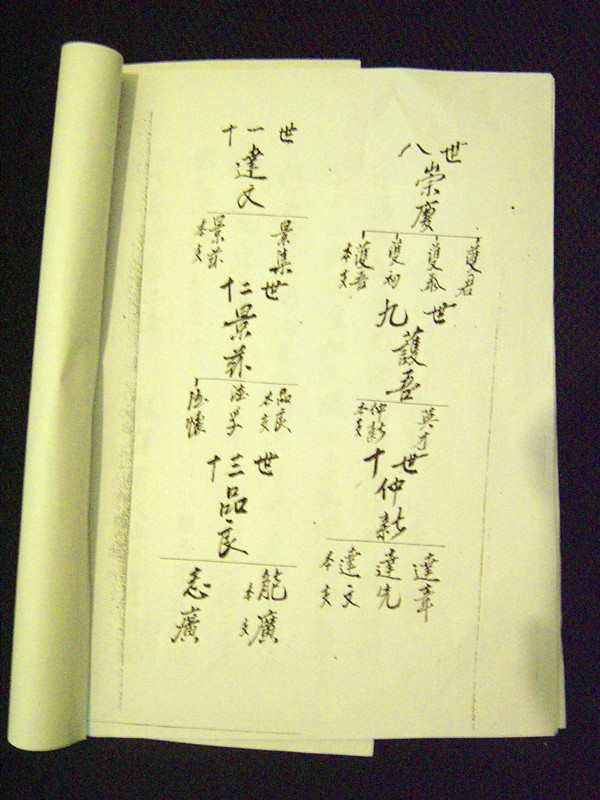 八世
崇慶
護君
護泰
護初
護吾
本支
九世
護吾
英才
仲新
本支
十世
仲新
達章
達先
達文
本支
十一世
達文
景集
景蘇
本支
十二世
景蘇
品良
本支
德懷
十三世
品良
能廣
本支
志廣